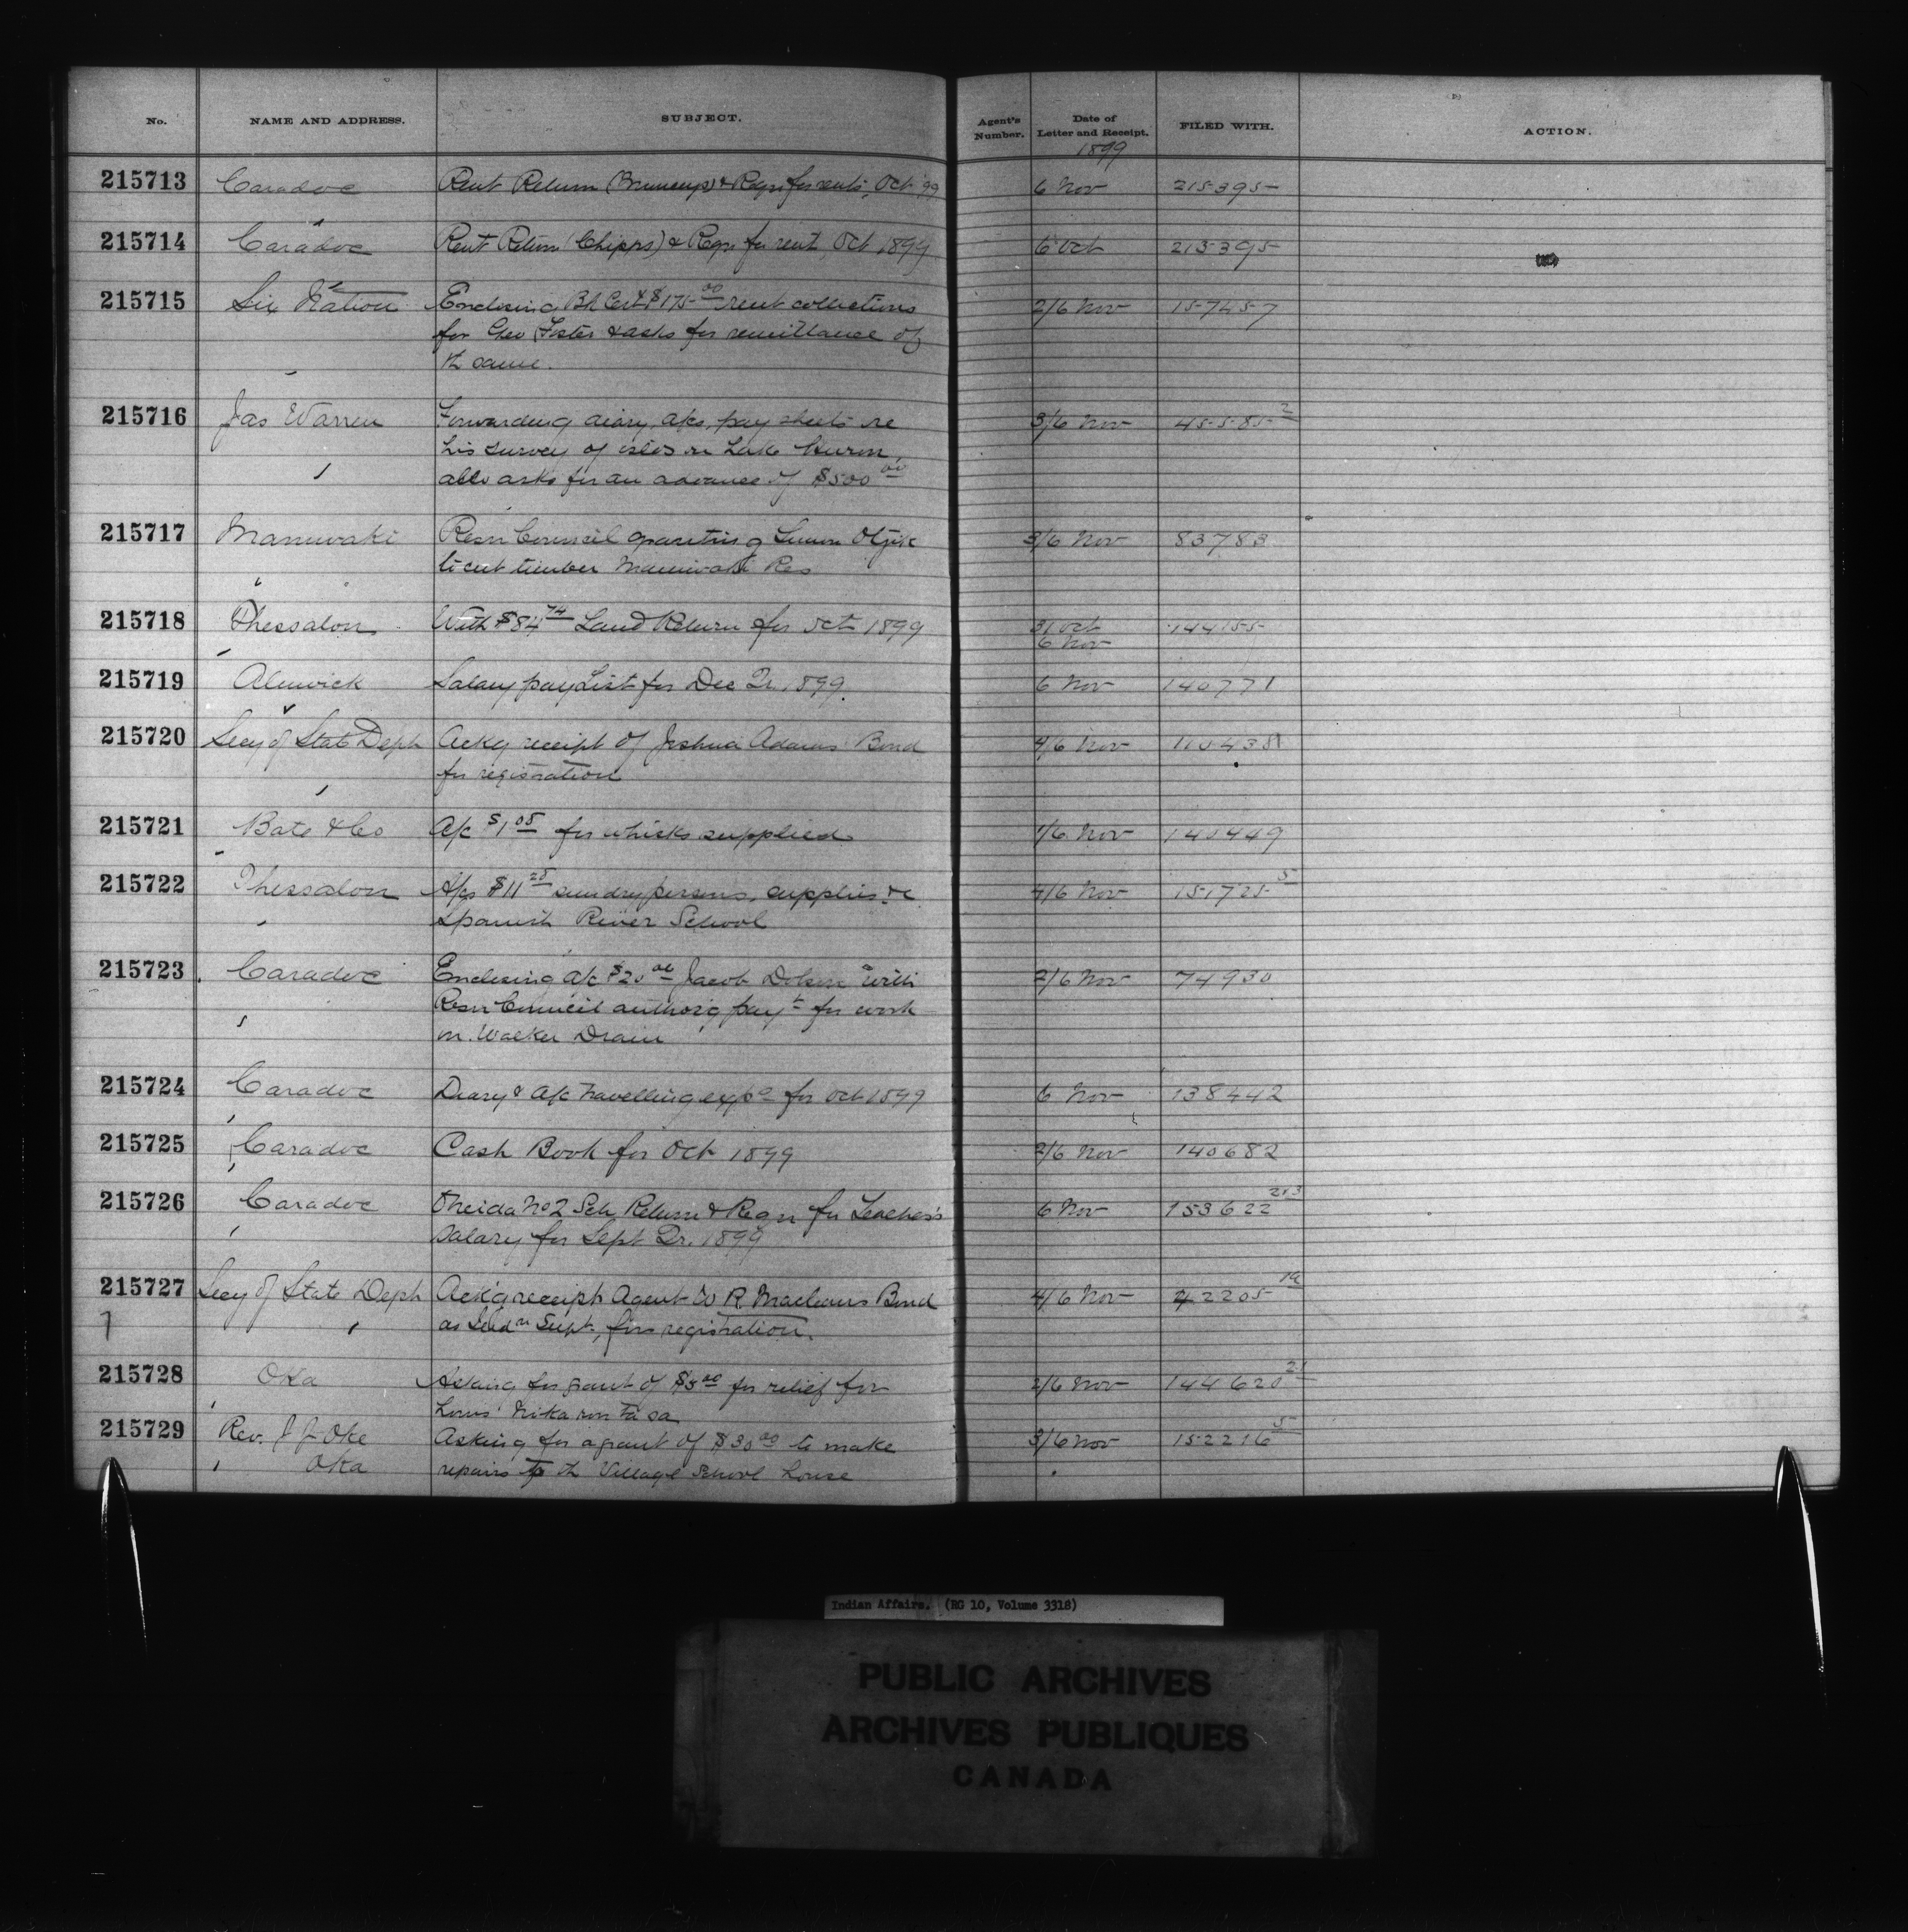 No. NAME AND ADDRESS. SUBJECT. Agent's Number. Date of Letter and Receipt. FILED WITH. ACTION.
1899
215713 Caradoc Rent Return & Reqn for rents, Oct '99 6 Nov 215395
215714 Caradoc Rent Return (Chipps) & Reqn for rent, Oct 1899 6 Oct 215395
215715 Six Nation Enclosing Bk Cert $175.00 rent collections 2/6 Nov 157457
for Geo Foster & asks for remittance of
th same.
215716 Jas Warren Forwarding diary, a/cs, pay sheets re 3/6 Nov 45585 2
his survey of islds in Lake Huron,
also asks for an advance of $500 00
215717 Maniwaki Resn Council 3/6 Nov 83783
to cut timber Maniwaki Res
215718 Thessalon With $84 74 Land Return for Oct 1899 31 Oct 144155
6 Nov
215719 Alnwick Salary pay List for Dec Qr. 1899. 6 Nov 140771
215720 Secy of State Dept Ackg receipt of Joshua Adams Bond 4/6 Nov
for registration
215721 Bate & Co A/c $1 05 for whisks supplied 1/6 Nov 140449
215722 Thessalon A/cs $11 25 sundry persons, supplies &c 4/6 Nov 151725 5
Spanish River School
215723 Caradoc Enclosing a/c $20 00 Jacob with 2/6 Nov 74930
Resn Council authorg payt for work
on Walker Drain
215724 Caradoc Diary & A/c travelling exps for Oct 1899 6 Nov 138442
215725 Caradoc Cash Book for Oct 1899 2/6 Nov 140682
215726 Caradoc Oneida No 2 Sch Return & Reqn for Teacher's 6 Nov 153622 213
Salary for Sept Qr. 1899
215727 Secy of State Dept Ack'g receipt Agent W R. Macleans Bond 4/6 Nov 42205
as Supt, for registration.
215728 Oka Asking for grant of $5 00 for relief for 2/6 Nov 144620 21
Louis
215729 Rev. J J Oke Asking for a grant of $30 00 to make 3/6 Nov 152216 5
Oka repairs to th Village School house
Indian Affairs. (RG 10, Volume 3318)
PUBLIC ARCHIVES
ARCHIVES PUBLIQUES
CANADA